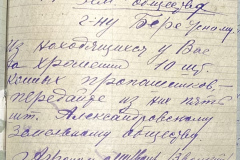 Зем. обществу
г-ну Бережному.
Из находящихся у Вас
на хранении 10 шт.
конных пропашников, —
передайте из них пять
шт. Александровскому
Земельному обществу.